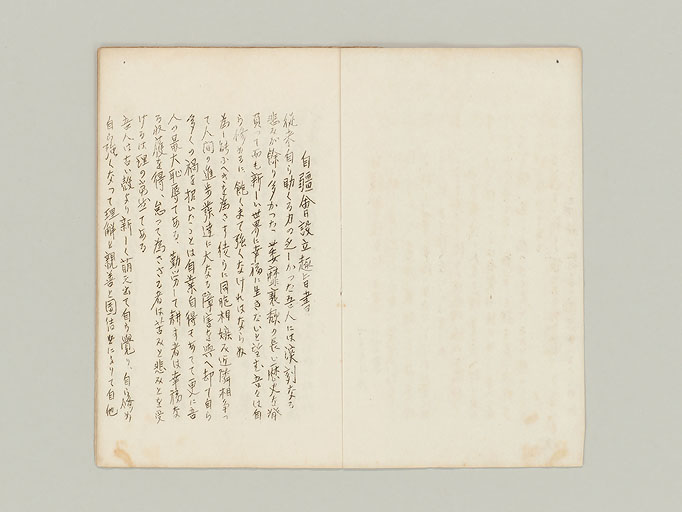 自疆會設立趣旨書
従来自ら助くる力の乏しかった吾人には深刻なる
悲みが餘り多かった 萎靡衰頽の長い歴史を背
負って而も新しい世界に幸福に生きたいと望む吾々は自
ら修めるに飽くまで強くなければならぬ
為し能ふべきを為さず徒らに同胞相嫉み近隣相争つ
て人間の進歩発達に大なる障害を與へ却て自ら
多くの禍を招いたことは自業自得であって更に吾
人の最大恥辱である、勤労して耕す者は幸福な
る収穫を得、怠って為さざる者は苦みと悲みとを受
けるは理の当然である
吾人は古い殻より新しく萌え出て自ら覺り、自ら修め
自ら強くなって理解と親善と団結によりて自他